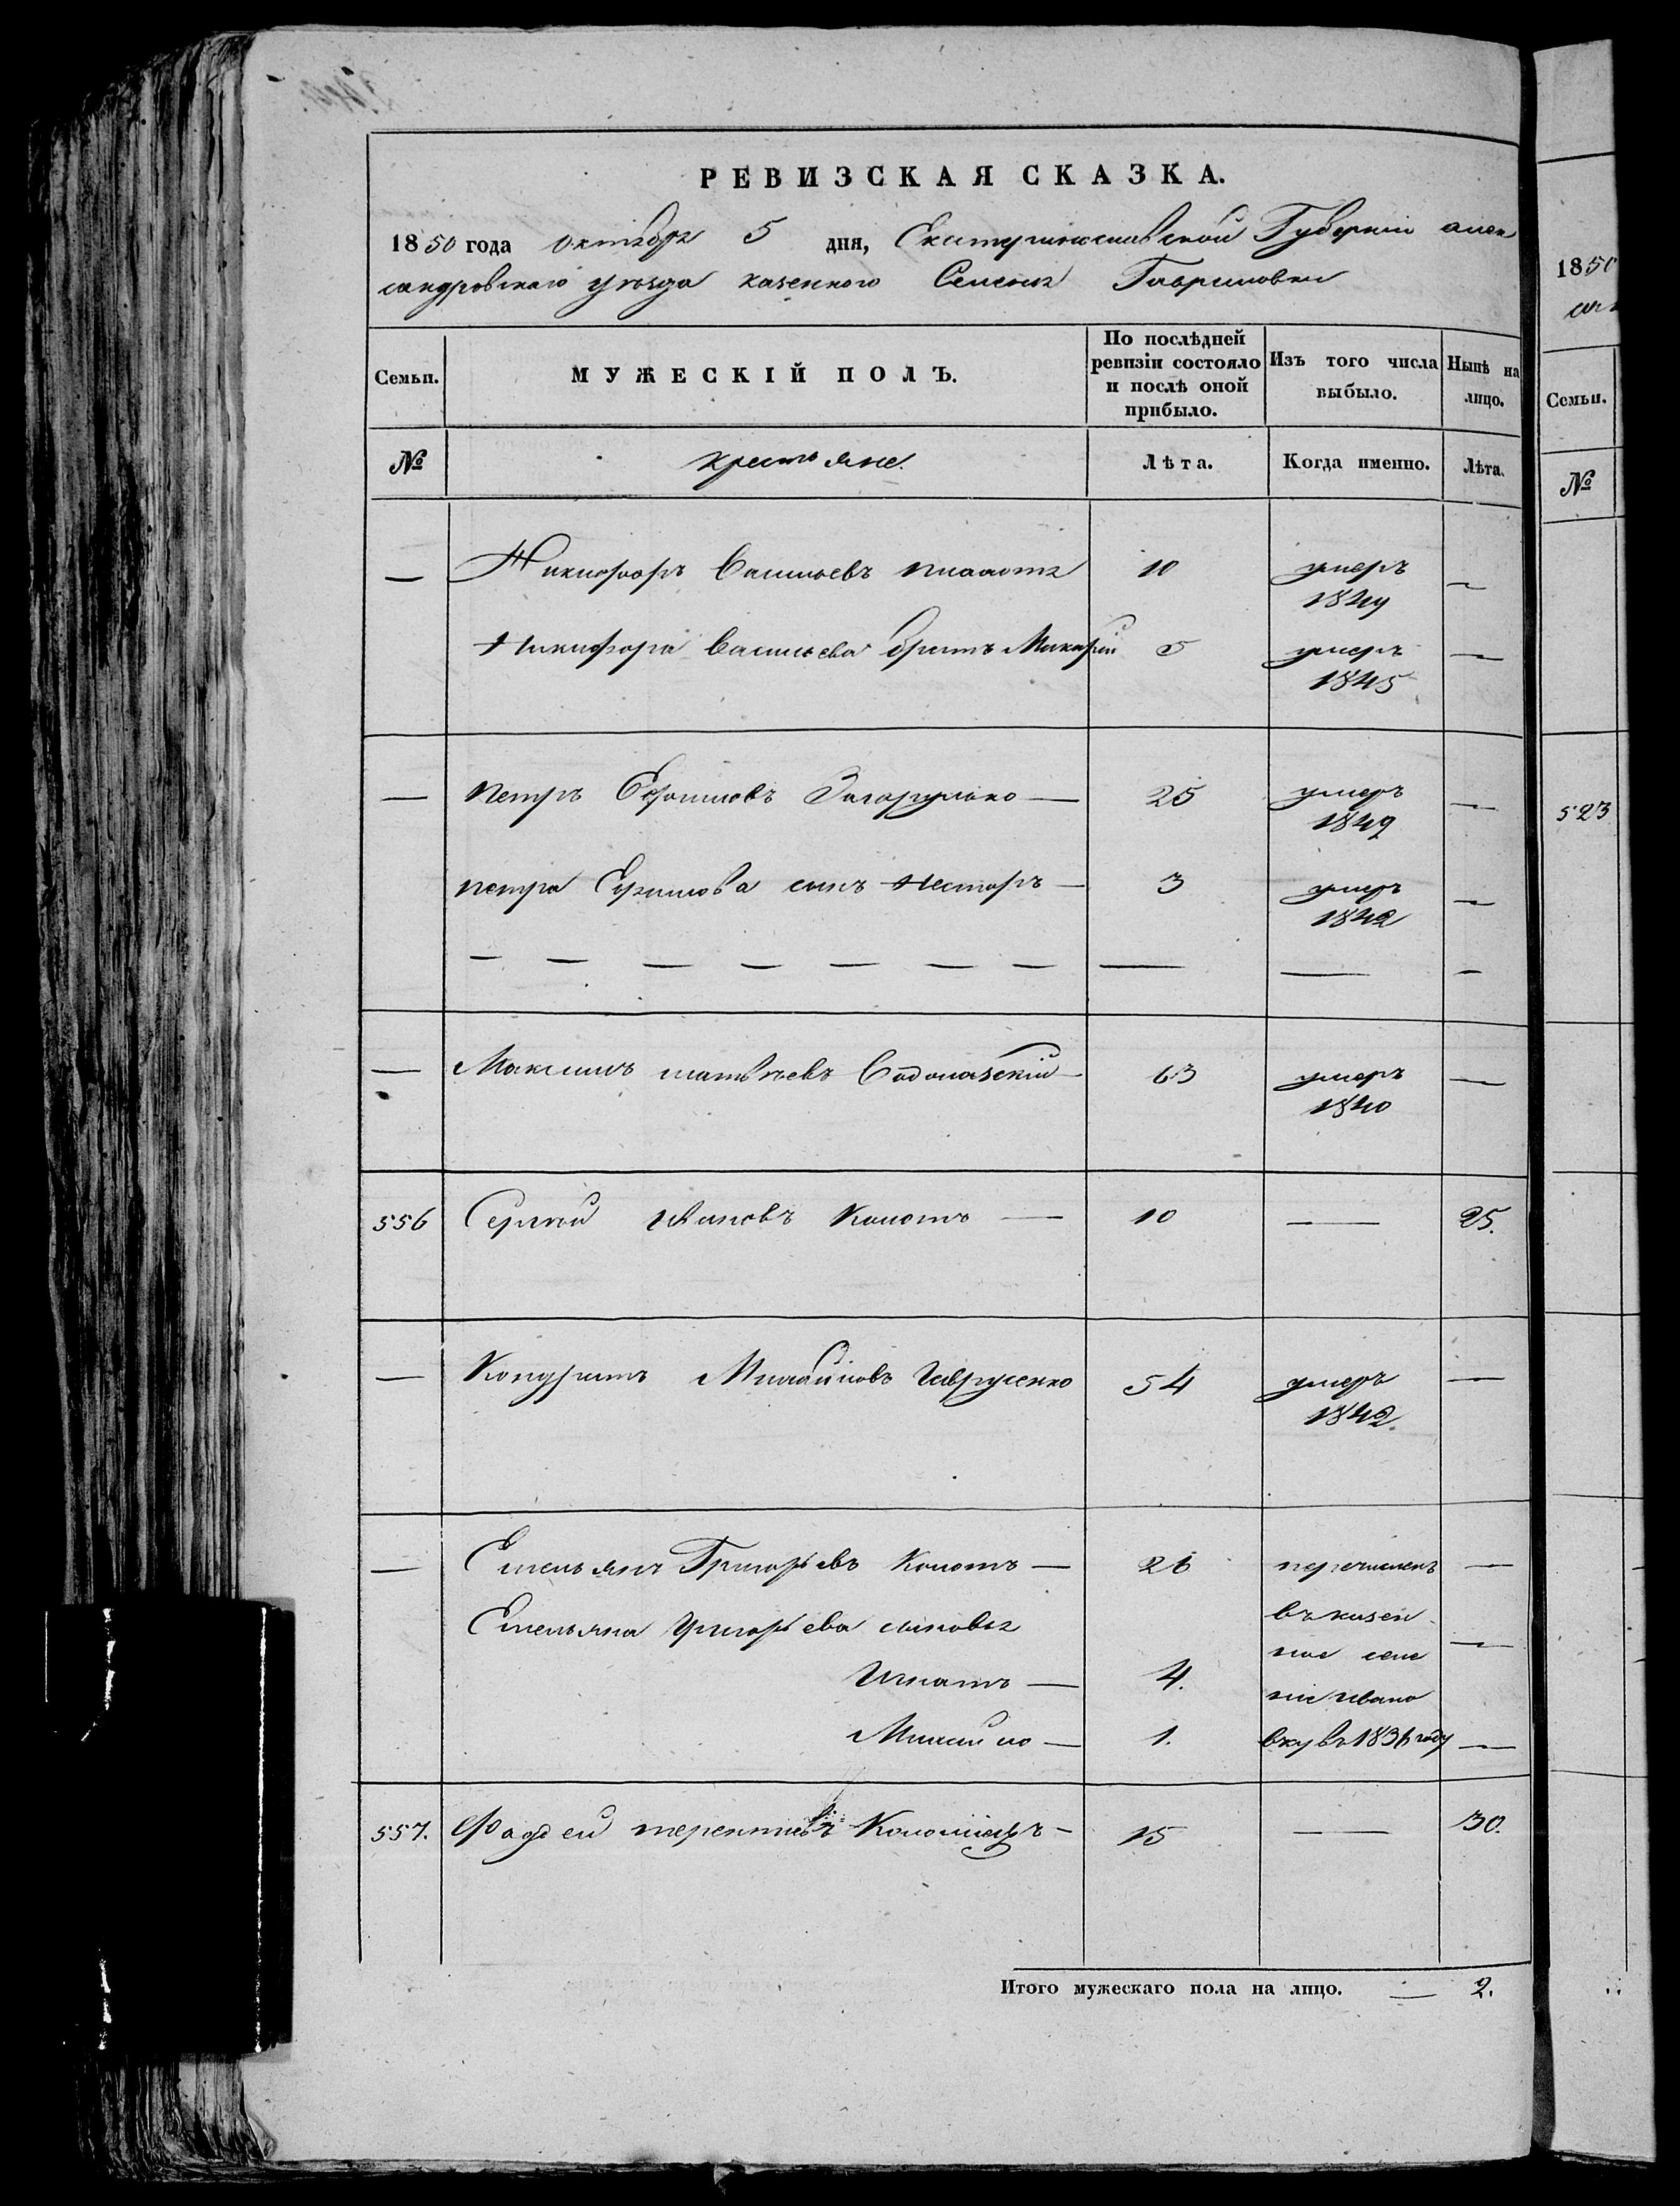 РЕВИЗСКАЯ СКАЗКА.
1850 года октября 5 дня, Екатеринославской Губерніи алек
сандровскаго уезда казенного Селенія Гавриловки
Семьи. МУЖЕСКІЙ ПОЛЪ. По послѣдней ревизіи состояло и послѣ оной прибыло. Изъ того числа выбыло. Нынѣ на лицо.
№ крестьяне. Лѣта. Когда именно. Лѣта.
— Никифоръ Васильевъ 10 умеръ 1849 —
Никифора Васильева братъ Макарій 5 умеръ 1845 —
— Петръ Ефимовъ Загорулько — 25 умеръ 1849 —
петра Ефимова сынъ Несторъ — 3 умеръ 1842 —
— — — — — — — — — —
— Максимъ матвѣевъ Водолазскій — 63 умеръ 1840 —
556 Сергѣй Ивановъ Коломъ — 10 — 25.
— Кондратъ Михайловъ Гаврусенко 54 умеръ 1842. —
— Емельянъ Григорьевъ Коломъ — 26 перечисленъ —
Емельяна Григорьева сыновья въ казен
ное селе —
Игнатъ — 4. ніе Ивано
Михайло — 1. вку въ 1836 году —
557. Фаддей терентиевъ Коломіецъ — 15 — 30.
Итого мужескаго пола на лицо. — 2.
1850
Семьи.
№
523